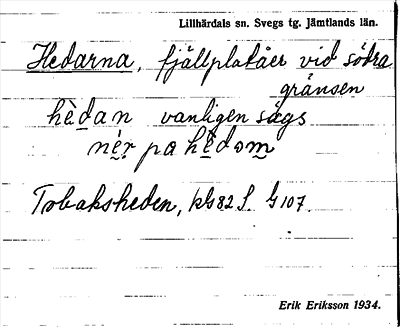 Lillhärdals sn. Svegs tg. Jämtlands län.
Hedarna, fjällplatåer vid södra
gränsen
hèdan vanligen sägs
nér pa hèdom
Tobaksheden, kls82 S. G107.
Erik Eriksson 1934.